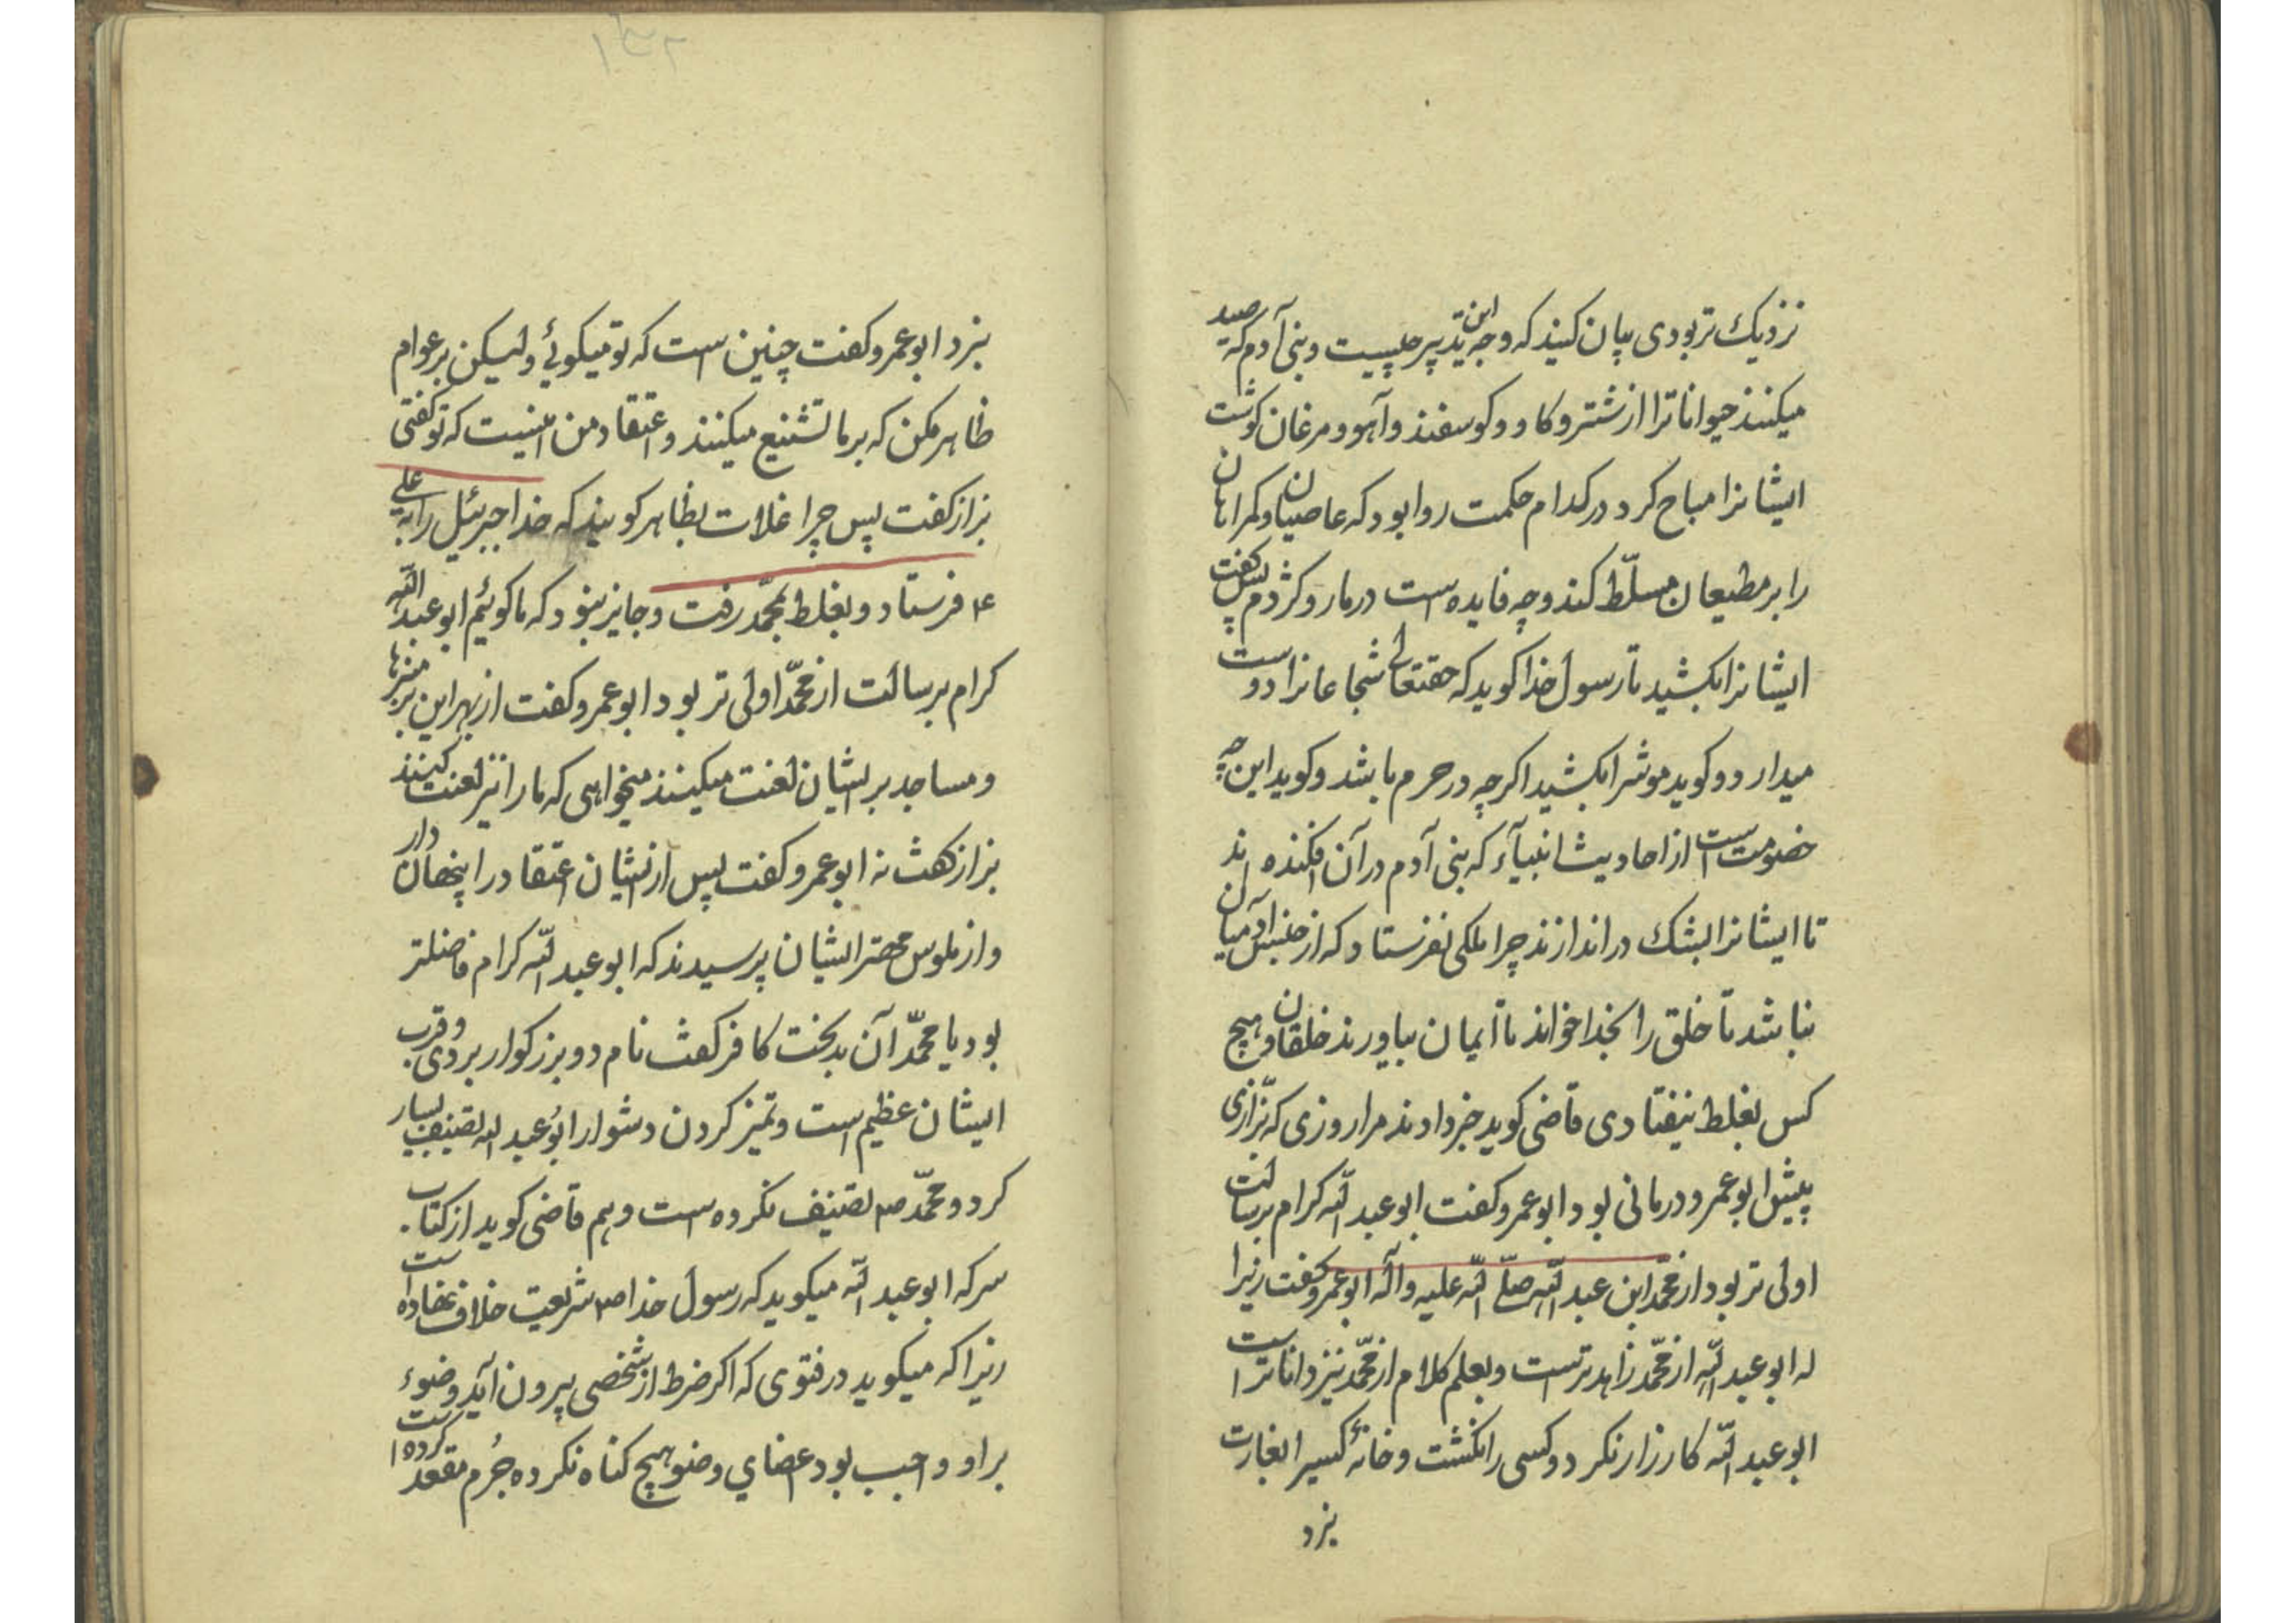 نزدیک تر بودی بیان کنید که وجه این تدبیر چیست و بنی آدم که صید
میکنند حیوانات را از شتر و کاو و کوسفند و آهو و مرغان کوشت
ایشانرا مباح کرد در کدام حکمت روا بود که عاصیان و کمراهان
را بر مطیعان مسلّط کند و چه فایده است در مار و کژدم پس کفت
ایشانرا بکشید تا رسول خدا کوید که حقتعالی شجاعانرا دوست
میدارد و کوید موشرا بکشید اکرچه در حرم باشد و کوید این چه
خصومت است از احادیث انبیآء که بنی آدم در آن افکنده اند
تا ایشانرا بشک در اندازند چرا ملکی نفرستاد که از جنس آدمیان
نباشد تا خلق را بخدا خواند تا ایمان بیاورند خلقان و هیچ
کس بغلط نیفتادی قاضی کوید خبر دادند مرا روزی که بزّازی
پیش ابو عمرو درمانی بود ابو عمرو کفت ابو عبد الله کرام برسالت
اولی تر بود از محمّد ابن عبد الله صلّی الله علیه وآله ابو عمرو کفت زیرا
له ابو عبد الله از محمّد زاهدترست و بعلم کلام از محمّد نیز داناتر است
ابو عبد الله کارزار نکرد و کسی را نکشت و خانهٔ کسیرا بغارت
نبرد
نبرد ابو عمرو کفت چنین است که تو میکوئی ولیکن بر عوام
ظاهر مکن که بر ما تشنیع میکنند و اعتقاد من اینست که تو کفتی
بزاز کفت پس چرا غلات بظاهر کویند که خدا جبرئیل را به علی
ع فرستاد و بغلط بمحمّد رفت و جایز نبود که ما کوئیم ابو عبد الله
کرام برسالت از محمّد اولی تر بود ابو عمرو کفت از بهر این بر منبرها
و مساجد بر ایشان لعنت میکنند میخواهی که ما را نیز لعنت کنند
بزاز کفت نه ابو عمرو کفت پس از نشان اعتقاد را پنهان دار
و از ملوس مهتر ایشان پرسیدند که ابو عبد الله کرام فاضلتر
بود یا محمّد آن بدبخت کافر کفت نام دو بزرکوار بردی و قرب
ایشان عظیم است و تمیز کردن دشوار ابو عبد الله تصنیف بسیار
کرد و محمّد ص تصنیف نکرده است و هم قاضی کوید از کتاب
سر که ابو عبد الله میکوید که رسول خدا ص شریعت خلاف نهاده است
زیرا که میکوید در فتوی که اکر ضرط از شخصی بیرون آید وضوء
بر او واجب بود اعضاي وضو هیچ کناه نکرده جُرم مقعد کرده است